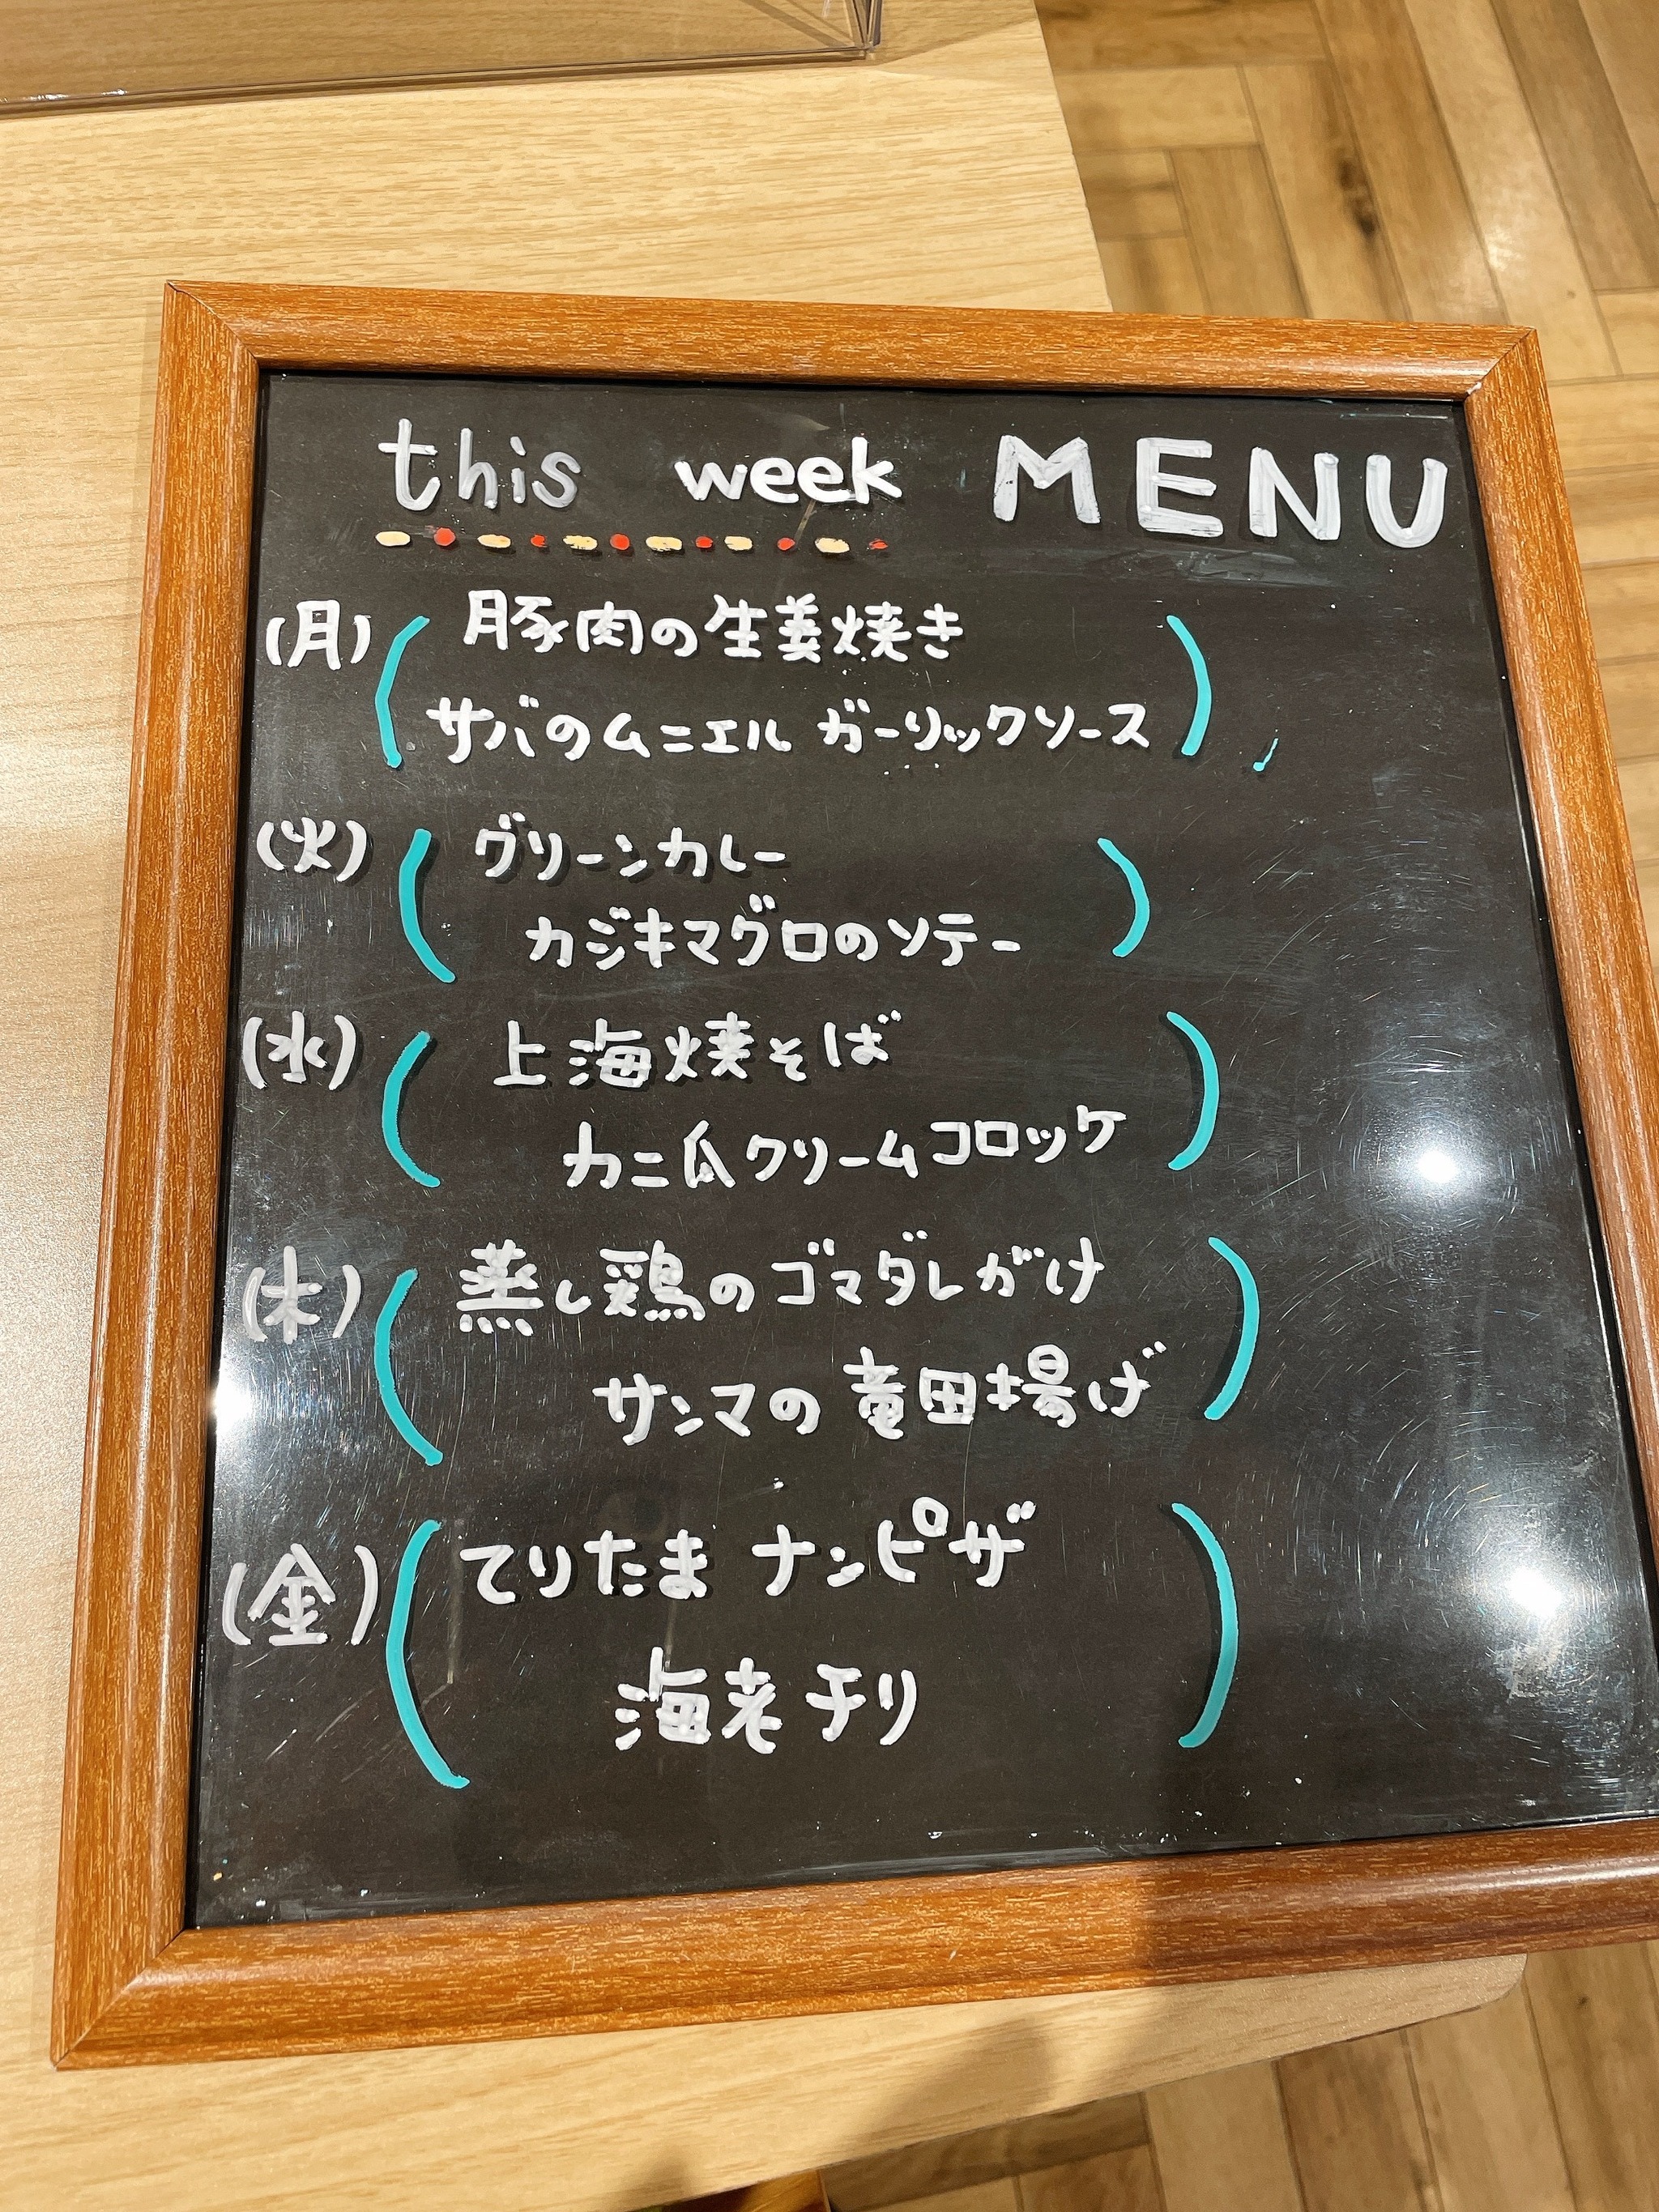 this week MENU
(月) 豚肉の生姜焼き
サバのムニエル ガーリックソース
(火) グリーンカレー
カジキマグロのソテー
(水) 上海焼そば
カニ爪クリームコロッケ
(木) 蒸し鶏のゴマダレがけ
サンマの竜田揚げ
(金) てりたま ナンピザ
海老チリ